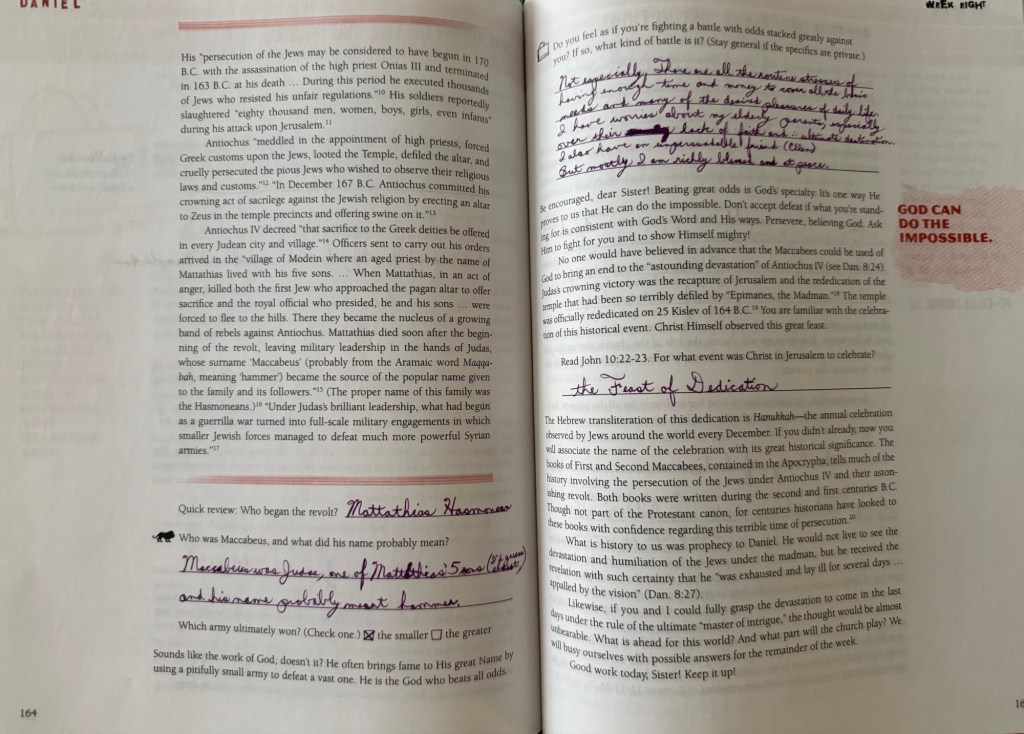 DANIEL
His "persecution of the Jews may be considered to have begun in 170
B.C. with the assassination of the high priest Onias III and terminated
in 163 B.C. at his death … During this period he executed thousands
of Jews who resisted his unfair regulations."10 His soldiers reportedly
slaughtered "eighty thousand men, women, boys, girls, even infants"
during his attack upon Jerusalem.11
Antiochus "meddled in the appointment of high priests, forced
Greek customs upon the Jews, looted the Temple, defiled the altar, and
cruelly persecuted the pious Jews who wished to observe their religious
laws and customs."12 "In December 167 B.C. Antiochus committed his
crowning act of sacrilege against the Jewish religion by erecting an altar
to Zeus in the temple precincts and offering swine on it."13
Antiochus IV decreed "that sacrifice to the Greek deities be offered
in every Judean city and village."14 Officers sent to carry out his orders
arrived in the "village of Modein where an aged priest by the name of
Mattathias lived with his five sons. … When Mattathias, in an act of
anger, killed both the first Jew who approached the pagan altar to offer
sacrifice and the royal official who presided, he and his sons … were
forced to flee to the hills. There they became the nucleus of a growing
band of rebels against Antiochus. Mattathias died soon after the begin-
ning of the revolt, leaving military leadership in the hands of Judas,
whose surname 'Maccabeus' (probably from the Aramaic word Maqqa-
bah, meaning 'hammer') became the source of the popular name given
to the family and its followers."15 (The proper name of this family was
the Hasmoneans.)16 "Under Judas's brilliant leadership, what had begun
as a guerrilla war turned into full-scale military engagements in which
smaller Jewish forces managed to defeat much more powerful Syrian
armies."17
Quick review: Who began the revolt? Mattathias Hasmonean
Who was Maccabeus, and what did his name probably mean?
Maccabeus was Judas, one of Mattathias' 5 sons
and his name probably meant hammer.
Which army ultimately won? (Check one.) ☒ the smaller ☐ the greater
Sounds like the work of God, doesn't it? He often brings fame to His great Name by
using a pitifully small army to defeat a vast one. He is the God who beats all odds.
164
WEEK EIGHT
Do you feel as if you're fighting a battle with odds stacked greatly against
you? If so, what kind of battle is it? (Stay general if the specifics are private.)
Not especially. There are all the routine stresses of
having enough time and money to cover all the basic
needs and many of the desired pleasures of daily life.
I have worries about my elderly parents, especially
over their lack of faith and ultimate destination.
I also have an friend (Ellen)
But mostly I am richly blessed and at peace.
Be encouraged, dear Sister! Beating great odds is God's specialty. It's one way He
proves to us that He can do the impossible. Don't accept defeat if what you're stand-
ing for is consistent with God's Word and His ways. Persevere, believing God. Ask
Him to fight for you and to show Himself mighty!
No one would have believed in advance that the Maccabees could be used of
God to bring an end to the "astounding devastation" of Antiochus IV (see Dan. 8:24).
Judas's crowning victory was the recapture of Jerusalem and the rededication of the
temple that had been so terribly defiled by "Epimanes, the Madman."18 The temple
was officially rededicated on 25 Kislev of 164 B.C.19 You are familiar with the celebra-
tion of this historical event. Christ Himself observed this great feast.
GOD CAN
DO THE
IMPOSSIBLE.
Read John 10:22-23. For what event was Christ in Jerusalem to celebrate?
the Feast of Dedication
The Hebrew transliteration of this dedication is Hanukkah—the annual celebration
observed by Jews around the world every December. If you didn't already, now you
will associate the name of the celebration with its great historical significance. The
books of First and Second Maccabees, contained in the Apocrypha, tells much of the
history involving the persecution of the Jews under Antiochus IV and their aston-
ishing revolt. Both books were written during the second and first centuries B.C.
Though not part of the Protestant canon, for centuries historians have looked to
these books with confidence regarding this terrible time of persecution.20
What is history to us was prophecy to Daniel. He would not live to see the
devastation and humiliation of the Jews under the madman, but he received the
revelation with such certainty that he "was exhausted and lay ill for several days …
appalled by the vision" (Dan. 8:27).
Likewise, if you and I could fully grasp the devastation to come in the last
days under the rule of the ultimate "master of intrigue," the thought would be almost
unbearable. What is ahead for this world? And what part will the church play? We
will busy ourselves with possible answers for the remainder of the week.
Good work today, Sister! Keep it up!